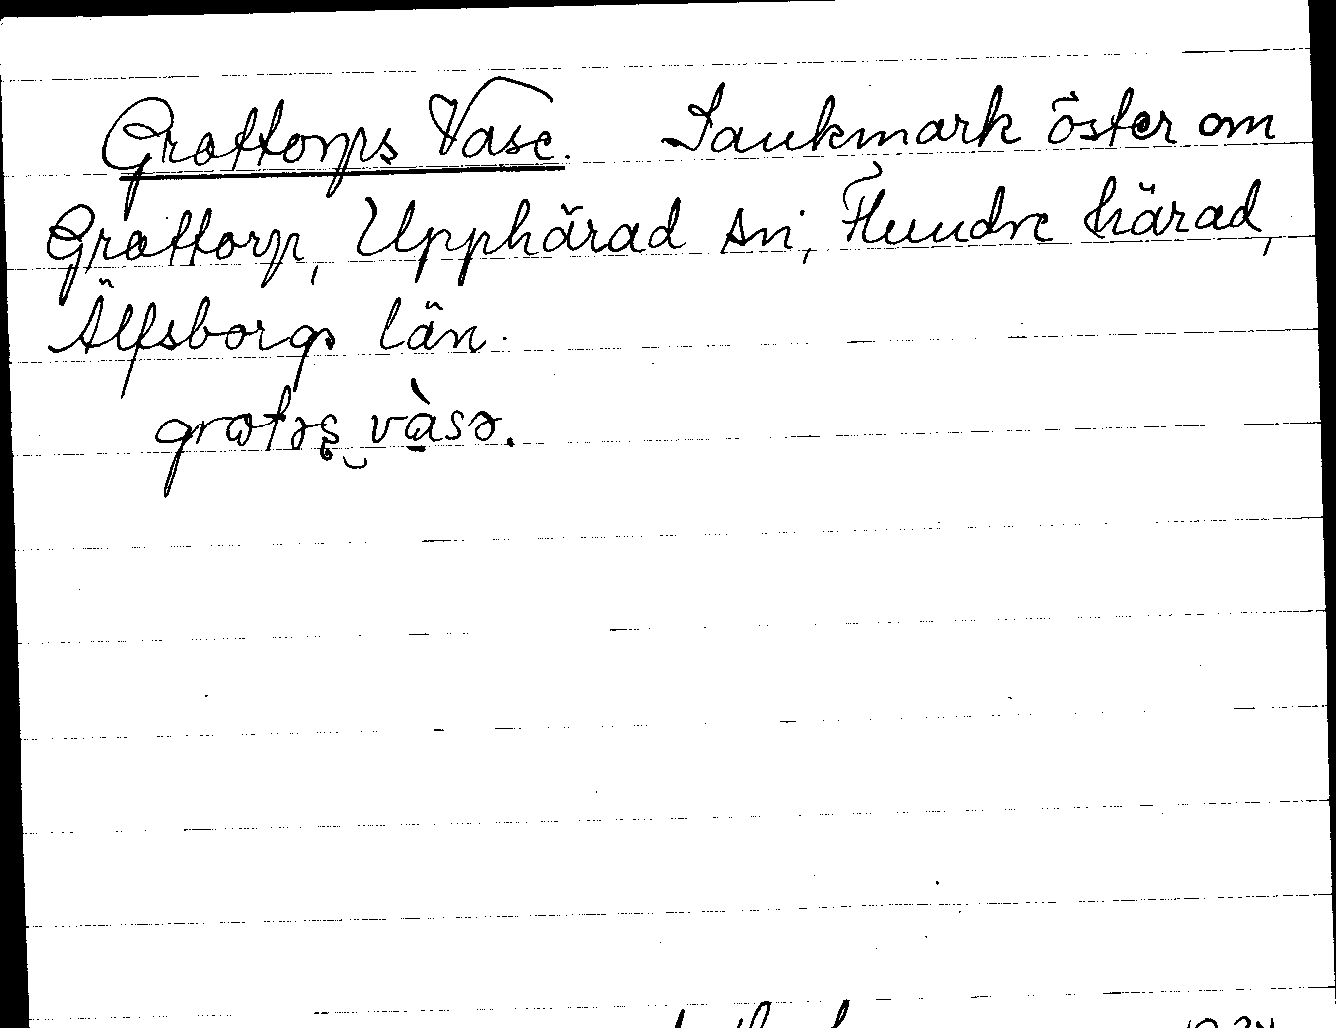 Grottorps Vase. Sankmark öster om
Grottorp, Upphärad sn, Flundre härad,
Älfsborgs län.
grotəʂ vàsə.